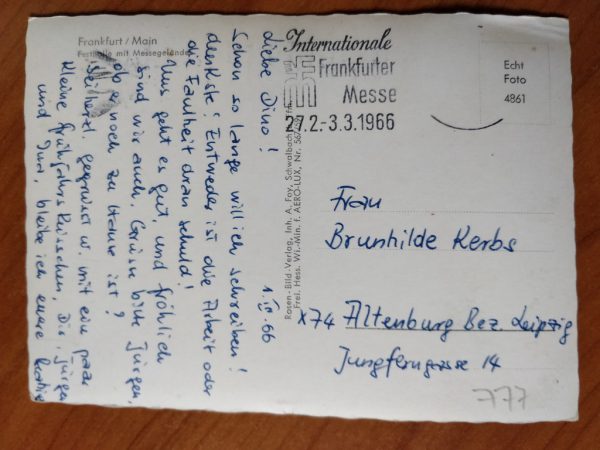 Frankfurt / Main
Festhalle mit Messegelände
Liebe Dino!
Schon so lange will ich schreiben!
denkste! Entweder ist die Arbeit oder
die Faulheit dran schuld!
Uns geht es gut, und fröhlich
sind wir auch. Grüße bitte Jürgen,
ob er noch zu Hause ist?
Sei herzl. gegrüsst u. mit ein paar
kleine Frühjahrs Küsschen, Dir, Jürgen
und bleibe ich eure
66
Rosen-Bild-Verlag, Inh. A. Fay, Schwalbach
Frei. Hess. Wi.-Min. f. AERO-LUX, Nr.
Internationale
Frankfurter
Messe
27.2.-3.3.1966
Echt
Foto
4861
Frau
Brunhilde Kerbs
x74 Altenburg Bez. Leipzig
Jungferngasse 14
777